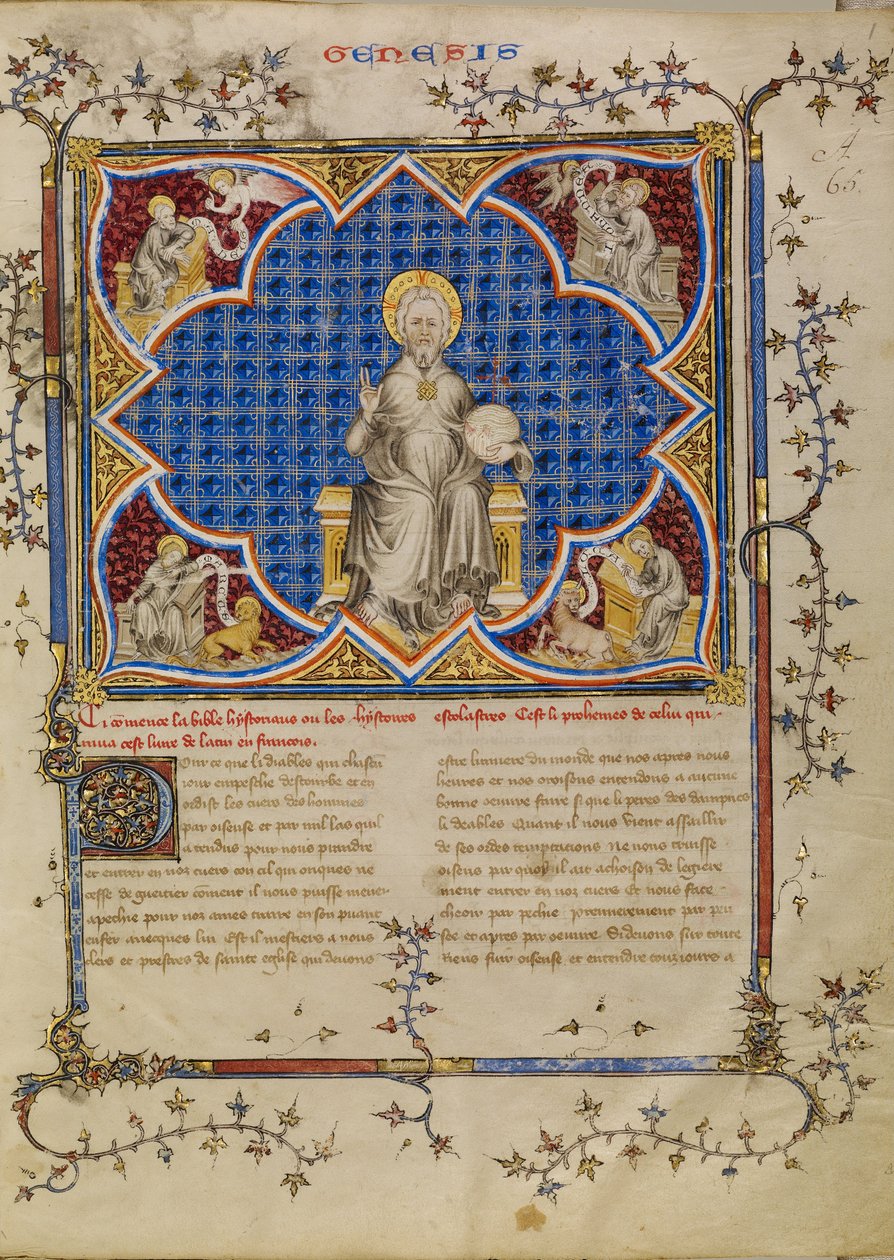 GENESIS
1
A
65.
Ci cōmence la bible hystoriaus ou les hystoires escolastres Cest li prohemes de celui qui
mua cest liure de latin en francois.
Pour ce que li diables qui chascun
iour empesche destourbe et en
ordist les cuers des hommes
par oiseuse et par mil las quil
a tendus pour nous prendre
et entrer en noz cuers con cil qui onques ne
cesse de gueitier cōment il nous puisse mener
a pechie pour noz ames traire en son puant
enfer auecques lui Est il mestiers a nous
clers et prestres de sainte eglise qui deuons
estre lumiere du monde que nos apres nous
heures et nos oroisons entendons a aucune
bonne oeuure faire si que li peres des dampnes
li deables Quant il nous vient assaillir
de ses ordes temptacions Ne nous truisse
oiseus par quoy il ait achoison de legiere
ment entrer en noz cuers Et nous face
cheoir par pechie Premierement par pen
see et apres par oeuure Si deuons fuir toute
Riens fuir oiseuse et entendre touz iours a